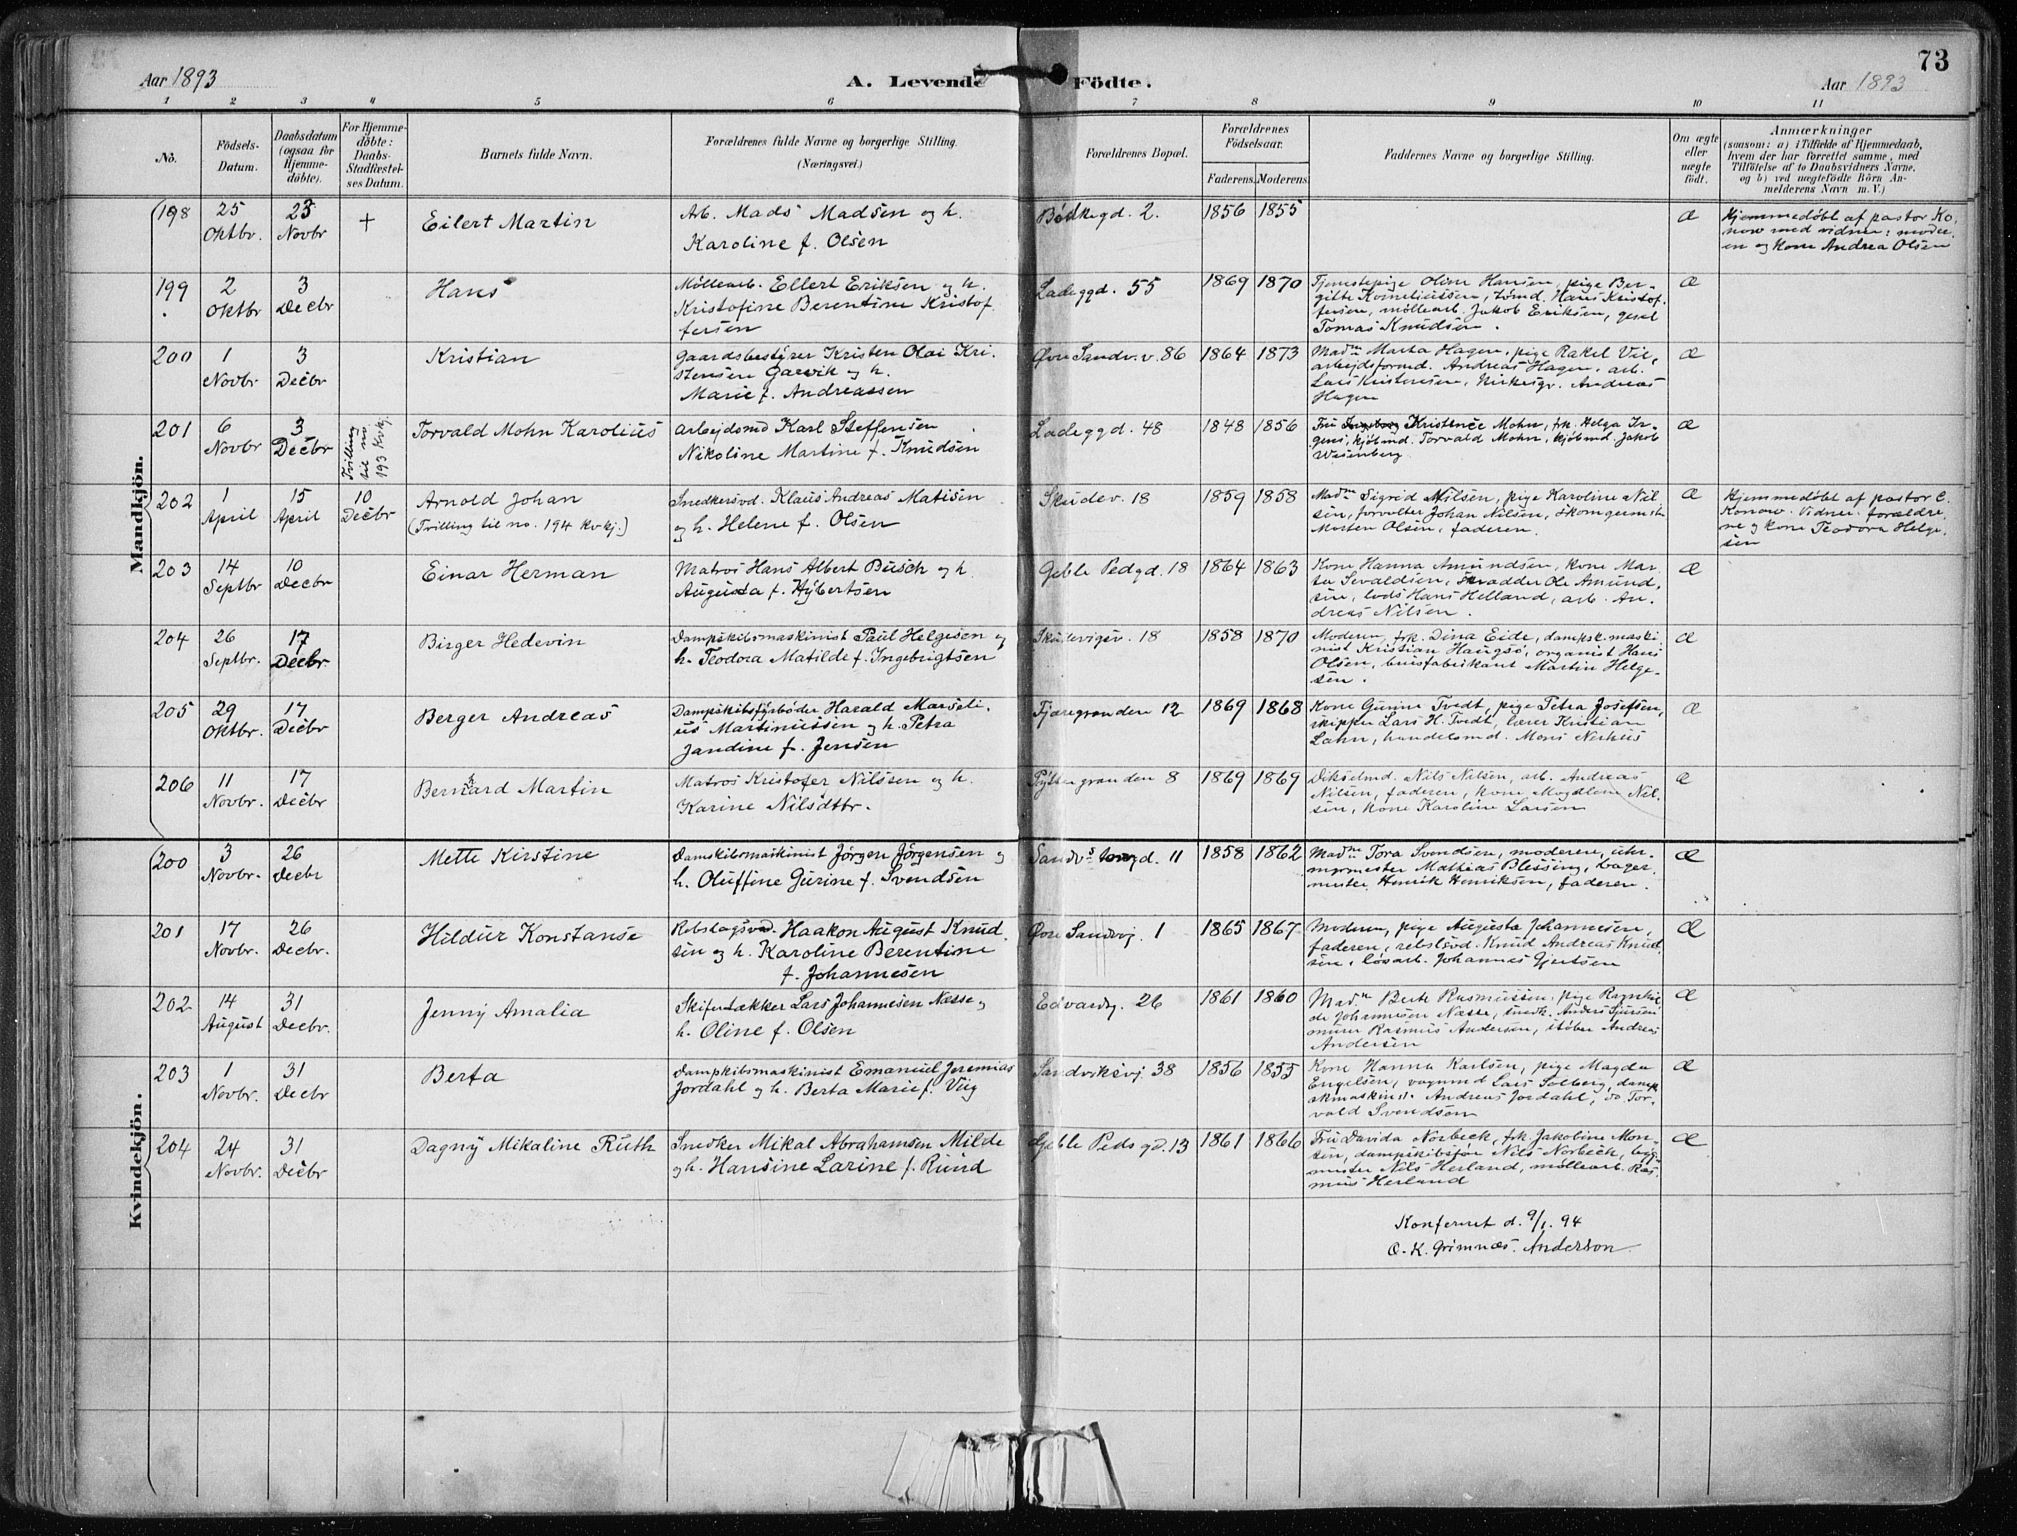 73
Aar 1893
A. Levende Födte.
Aar 1893
1 2 3 4 5 6 7 8 9 10 11
No.
Födsels-
Datum.
Daabsdatum
(ogsaa for
Hjemme-
döbte).
For Hjemme-
döbte:
Daabs-
Stadfæstel-
ses Datum.
Barnets fulde Navn.
Forældrenes fulde Navne og borgerlige Stilling.
(Næringsvei.)
Forældrenes Bopæl.
Forældrenes
Födselsaar.
Faderens. Moderens.
Faddernes Navne og borgerlige Stilling.
Om ægte
eller
uægte
födt.
Anmærkninger
(saasom: a) i Tilfælde af Hjemmedaab,
hvem der har forrettet samme, med
Tilföielse af to Daabsvidners Navne.
og b) ved uægtefödte Börn An-
melderens Navn m. V.)
Mandkjön.
198
25
Oktbr.
23
Novbr
+
Eilert Martin
Arb. Mads Madsen og h.
Karoline f. Olsen
Bödkergd. 2.
1856 1855
æ
Hjemmedöbt af pastor Ko-
now med vidner: moder-
en og kone Andrea Olsen
199
2
Oktbr
3
Decbr
Hans
Möllearb. Ellert Eriksen og h.
Kristofine Berentine Kristof
fersen
Ladeggd. 55
1869 1870
Tjenestepige Oline Hansen, pige Ber-
gitte Korneliussen, tömd. Hans Kristof-
fersen, möllearb. Jakob Eriksen, gesel
Tomas Knudsen.
æ
200
1
Novbr
3
Decbr
Kristian
Gaardsbestyrer Kristen Olai Kri-
stensen Garvik og h.
Marie f. Andreassen
Övre Sandv. v. 86
1864 1873
Madm Marta Hagen, pige Rakel Vik,
arbejdsformd. Andreas Hagen, arb.
Lars Kristensen, kirkesgr. Andreas
Hagen
æ
201
6
Novbr
3
Decbr
Tvilling
til no
193 Kvkj.
Torvald Mohn Karolius
Arbejdsmd Karl Steffensen
Nikoline Martine f. Knudsen
Ladeggd. 48
1848 1856
Fru Ingeborg Kristence Mohn, frk. Helga Ir-
gens, kjöbmd. Torvald Mohn, kjöbmd. Jakob
Wesenberg
æ
202
1
April
15
April
10
Decbr
Arnold Johan
(Tvilling til no. 194 kvkj.)
Snedkersvd. Klaus Andreas Matisen
og h. Helene f. Olsen
Skudev. 18
1859 1858
Madm Sigrid Nilsen, pige Karoline Nil
sen, forvalter Johan Nilsen, skomgermester
Morten Olsen, faderen.
æ
Hjemmedöbt af pastor C.
Konow. Vidner: foræeldre
ne og kone Teodora Helge-
sen
203
14
Septbr
10
Decbr
Einar Herman
Matros Hans Albert Busch og h.
Augusta f. Hybertsen
Geble Pedgd. 18
1864 1863
Kone Hanna Amundsen, kone Mar-
ta Sevaldsen, skrædder Ole Amund-
sen, lods Hans Helland, arb. An-
dreas Nilsen.
æ
204
26
Septbr.
17
Decbr
Birger Hedevin
Dampskibsmaskinist Paul Helgesen og
h. Teodora Matilde f. Ingebrigtsen
Skudevigsv. 18
1858 1870
Moderen, frk. Dina Eide, dampsk.maski-
nist Kristian Haugsö, organist Hans
Olsen, Martin Helge-
sen.
æ
205
29
Oktbr.
17
Decbr
Berger Andreas
Dampskibsfyrböder Harald Marseli-
us Martinussen og h. Petra
Jandine f. Jensen
Fjæregranden 12
1869 1868
Kone Gurine Tvedt, pige Petra Josefsen,
skipper Lars H. Tvedt, lærer Kristian
Lahn, handelsmd. Mons Nerhus
æ
206
11
Novbr.
17
Decbr
Bernhard Martin
Matros Kristofer Nilsen og h.
Karine Nilsdtbr.
Pyttergranden 8
1869 1869
Nils Nilsen, arb. Andreas
Nilsen, faderen, kone Magdlene Nil-
sen, kone Karoline Larsen
æ
Kvindekjön.
200
3
Novbr.
26
Decbr
Mette Kirstine
Damskibsmaskinist Jörgen Jörgensen og
h. Oluffine Gurine f. Svendsen
Sandvs torvgd. 11
1858 1862
Madm Tora Svendsen, moderen, uhr-
magermester Mathias Blessing, bager-
mester Henrik Henriksen, faderen.
æ
201
17
Novbr.
26
Decbr.
Hildur Konstanse
Rebslagsvd. Haakon August Knud
sen og h. Karoline Berentine
f. Johannesen
Övre Sandvj. 1
1865 1867
Moderen, pige Augusta Johannesen,
faderen, rebslsvd. Knud Andreas Knud
sen, lösarb. Johannes Gjertsen
æ
202
14
August
31
Decbr.
Jenny Amalia
Skifertækker Lars Johannesen Næsse og
h. Oline f. Olsen
Edvardsg. 26
1861 1860
Madm Berte Rasmussen, pige Ragnhil
de Johannesen Næsse, snedk. Anders Sjursen
murer Rasmus Andersen, stöber Andreas
Andersen
æ
203
1
Novbr.
31
Decbr
Berta
Dampskibsmaskinist Emanuel Jeremias
Jordahl og h. Berta Marie f. Viig
Sandviksvj. 38
1856 1855
Kone Hanna Karlsen, pige Magda
Engelsen, vognmd Lars Solberg, damp
skmaskinst. Andreas Jordahl, do Tor-
vald Svendsen
æ
204
24
Novbr.
31
Decbr
Dagny Mikaline Ruth
Snedker Mikal Abrahamsen Milde
og h. Hansine Larine f. Ruud
Geble Peds gd. 13
1861 1866
Fru Davida Norbeck, frk Jakobine Mon-
sen, dampskibsför Nils Norbeck, byg-
mester Nils Herland, möllearb. Ras-
mus Herland
æ
Konfereret d. 9/1. 94
O. K. Grimnæs. Anderson.